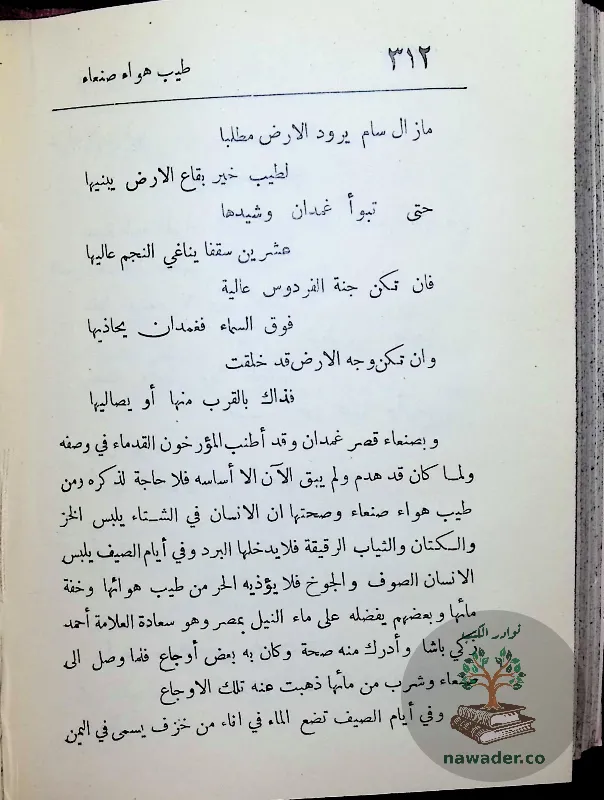 ٣١٢
طيب هواء صنعاء
مازال سام يرود الارض مطلبا
لطيب خير بقاع الارض يبنيها
حتى تبوأ غمدان وشيدها
عشرين سقفا يناغي النجم عاليها
فان تكن جنة الفردوس عالية
فوق السماء فغمدان يحاذيها
وان تكن وجه الارض قد خلقت
فذاك بالقرب منها أو يصاليها
وبصنعاء قصر غمدان وقد أطنب المؤرخون القدماء في وصفه
ولما كان قد هدم ولم يبق الآن الا أساسه فلا حاجة لذكره ومن
طيب هواء صنعاء وصحتها ان الانسان في الشتاء يلبس الخز
والكتان والثياب الرقيقة فلا يدخلها البرد وفي أيام الصيف يلبس
الانسان الصوف والجوخ فلا يؤذيه الحر من طيب هوائها وخفة
مائها وبعضهم يفضله على ماء النيل بمصر وهو سعادة العلامة أحمد
زكي باشا وأدرك منه صحة وكان به بعض أوجاع فلما وصل الى
صنعاء وشرب من مائها ذهبت عنه تلك الاوجاع
وفي أيام الصيف تضع الماء في اناء من خزف يسمى في اليمن
نوادر الكتب
nawader.co